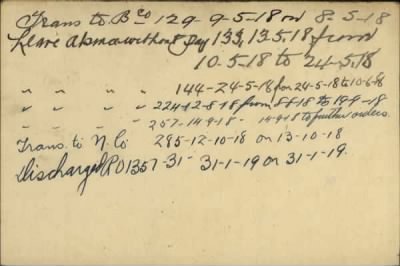 Trans to B Co 129 - 9-5-18 on 8-5-18
Leave absence without Pay 133, 13.5.18 from
10-5-18 to 24-5.18
" " " " 144-24-5-18 from 24-5-18 to 10-6-18
" " " " 224-12-8-18 from 8-18 to 19-9-18
257-14-9-18 - 14-9-18 to further orders.
Trans. to N. Co 285-12-10-18 on 13-10-18
Discharged RO 1357-31- 31-1-19 on 31-1-19.